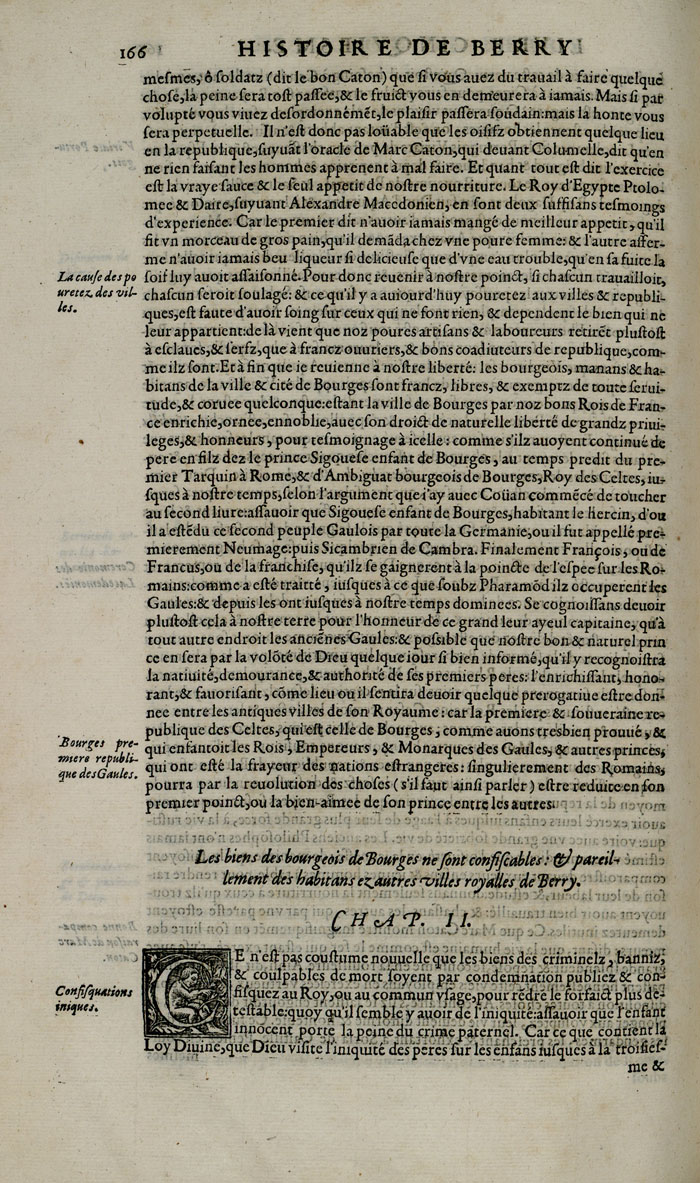 166 HISTOIRE DE BERRY
mesmes, ô soldatz (dit le bon Caton) que si vous auez du trauail à faire quelque
chose, la peine sera tost passee, & le fruict vous en demeurera à iamais. Mais si par
volupté vous viuez desordonnémẽt, le plaisir passera soudain: mais la honte vous
sera perpetuelle. Il n'est donc pas loüable que les oisifz obtiennent quelque lieu
en la republique, suyuãt l'oracle de Marc Caton, qui deuant Columelle, dit qu'en
ne rien faisant les hommes apprenent à mal faire. Et quant tout est dit l'exercice
est la vraye sauce & le seul appetit de nostre nourriture. Le Roy d'Egypte Ptolo-
mee & Daire, suyuant Alexandre Macedonien, en sont deux suffisans tesmoings
d'experience. Car le premier dit n'auoir iamais mangé de meilleur appetit, qu'il
fit vn morceau de gros pain, qu'il demãda chez vne poure femme: & l'autre affer-
me n'auoir iamais beu liqueur si delicieuse que d'vne eau trouble, qu'en sa fuite la
La cause des po
uretez des vil-
les.
soif luy auoit assaisonné. Pour donc reuenir à nostre poinct, si chascun trauailloit,
chascun seroit soulagé: & ce qu'il y a auiourd'huy pouretez aux villes & republi-
ques, est faute d'auoir soing sur ceux qui ne font rien, & dependent le bien qui ne
leur appartient: de là vient que noz poures artisans & laboureurs retirẽt plustost
à esclaues, & serfz, que à francz ouuriers, & bons coadiuteurs de republique, com-
me ilz sont. Et à fin que ie reuienne à nostre liberté: les bourgeois, manans & ha-
bitans de la ville & cité de Bourges sont francz, libres, & exemptz de toute serui-
tude, & coruee quelconque: estant la ville de Bourges par noz bons Rois de Fran-
ce enrichie, ornee, ennoblie, auec son droict de naturelle liberté de grandz priui-
leges, & honneurs, pour tesmoignage à icelle: comme s'ilz auoyent continué de
pere en filz dez le prince Sigouese enfant de Bourges, au temps predit du pre-
mier Tarquin à Rome, & d'Ambigat bourgeois de Bourges, Roy des Celtes, iu-
sques à nostre temps, selon l'argument que i'ay auec Coüan commẽcé de toucher
au second liure: assauoir que Sigouese enfant de Bourges, habitant le hercin, d'ou
il a estẽdu ce second peuple Gaulois par toute la Germanie, ou il fut appellé pre-
mierement Neumage: puis Sicambrien de Cambra. Finalement François, ou de
Francus, ou de la franchise, qu'ilz se gaignerent à la poincte de l'espee sur les Ro-
mains: comme a esté traitté, iusques à ce que soubz Pharamõd ilz occuperent les
Gaules: & depuis les ont iusques à nostre temps dominees. Se cognoissans deuoir
plustost cela à nostre terre pour l'honneur de ce grand leur ayeul capitaine, qu'à
tout autre endroit les anciẽnes Gaules: & possible que nostre bon & naturel prin
ce en sera par la volõté de Dieu quelque iour si bien informé, qu'il y recognoistra
la natiuité, demourance, & authorité de ses premiers peres: l'enrichissant, hono-
rant, & fauorisant, cõme lieu ou il sentira deuoir quelque prerogatiue estre don-
nee entre les antiques villes de son Royaume: car la premiere & souueraine re-
publique des Celtes, qui est celle de Bourges, comme auons tresbien prouué, &
Bourges pre-
miere republi-
que des Gaules.
qui enfantoit les Rois, Empereurs, & Monarques des Gaules, & autres princes,
qui ont esté la frayeur des nations estrangeres: singulierement des Romains,
pourra par la reuolution des choses (s'il faut ainsi parler) estre reduite en son
premier poinct, ou la bien-aimee de son prince entre les autres.
Les biens des bourgeois de Bourges ne sont confiscables: & pareil-
lement des habitans ez autres villes royalles de Berry.
CHAP. II.
CE n'est pas coustume nouuelle que les biens des criminelz, banniz,
& coulpables de mort soyent par condemnation publiez & con-
Confisquations
iniques.
fisquez au Roy, ou au commun vsage, pour rẽdre le forfaict plus de-
testable: quoy qu'il semble y auoir de l'iniquité: assauoir que l'enfant
innocent porte la peine du crime paternel. Car ce que contient la
Loy Diuine, que Dieu visite l'iniquité des peres sur les enfans iusques à la troisies-
me &